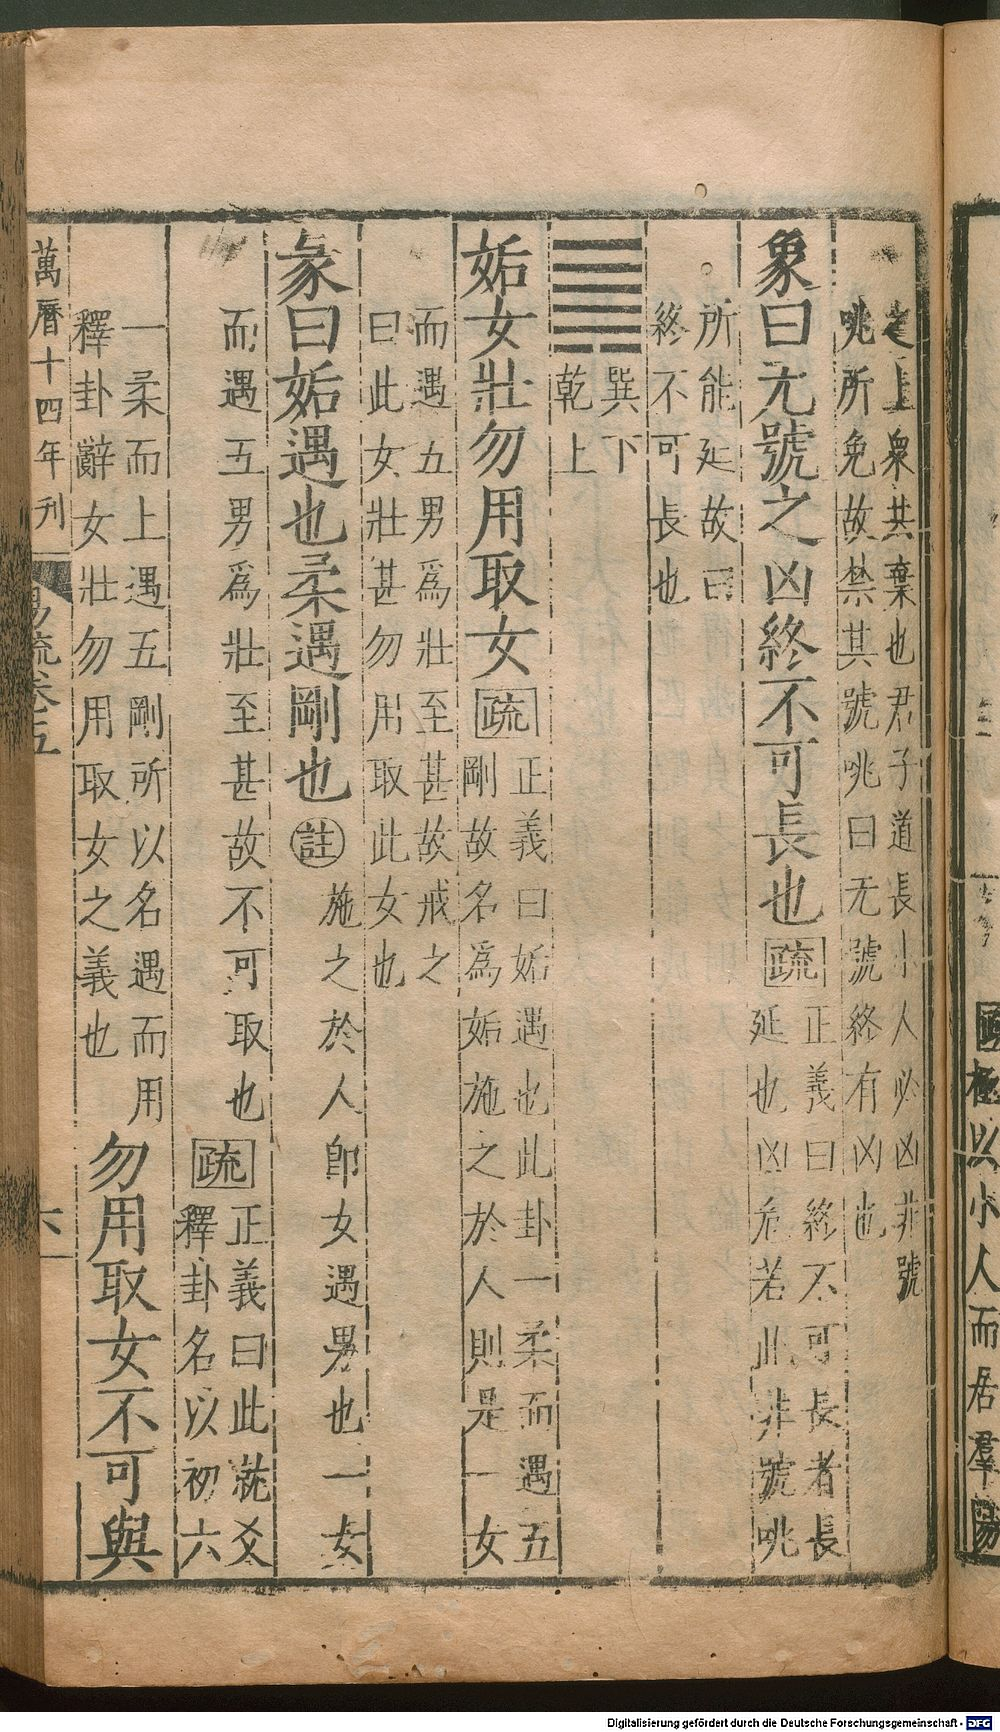 之上衆共棄也君子道長小人必凶非號
咷所免故禁其號咷曰无號終有凶也
象曰无號之凶終不可長也疏
正義曰終不可長者長
延也凶危若此非號咷
所能延故曰
終不可長也
巽下
乾上
姤女壯勿用取女疏
正義曰姤遇也此卦一柔而遇五
剛故名爲姤施之於人則是一女
而遇五男爲壯至甚故戒之
曰此女壯甚勿用取此女也
彖曰姤遇也柔遇剛也註
施之於人卽女遇男也一女
而遇五男爲壯至甚故不可取也
疏
正義曰此就爻
釋卦名以初六
一柔而上遇五剛所以名遇而用
釋卦辭女壯勿用取女之義也
勿用取女不可與
萬曆十四年刊
易疏卷五
六
極以小人而居羣陽
Digitalisierung gefördert durch die Deutsche Forschungsgemeinschaft - DFG